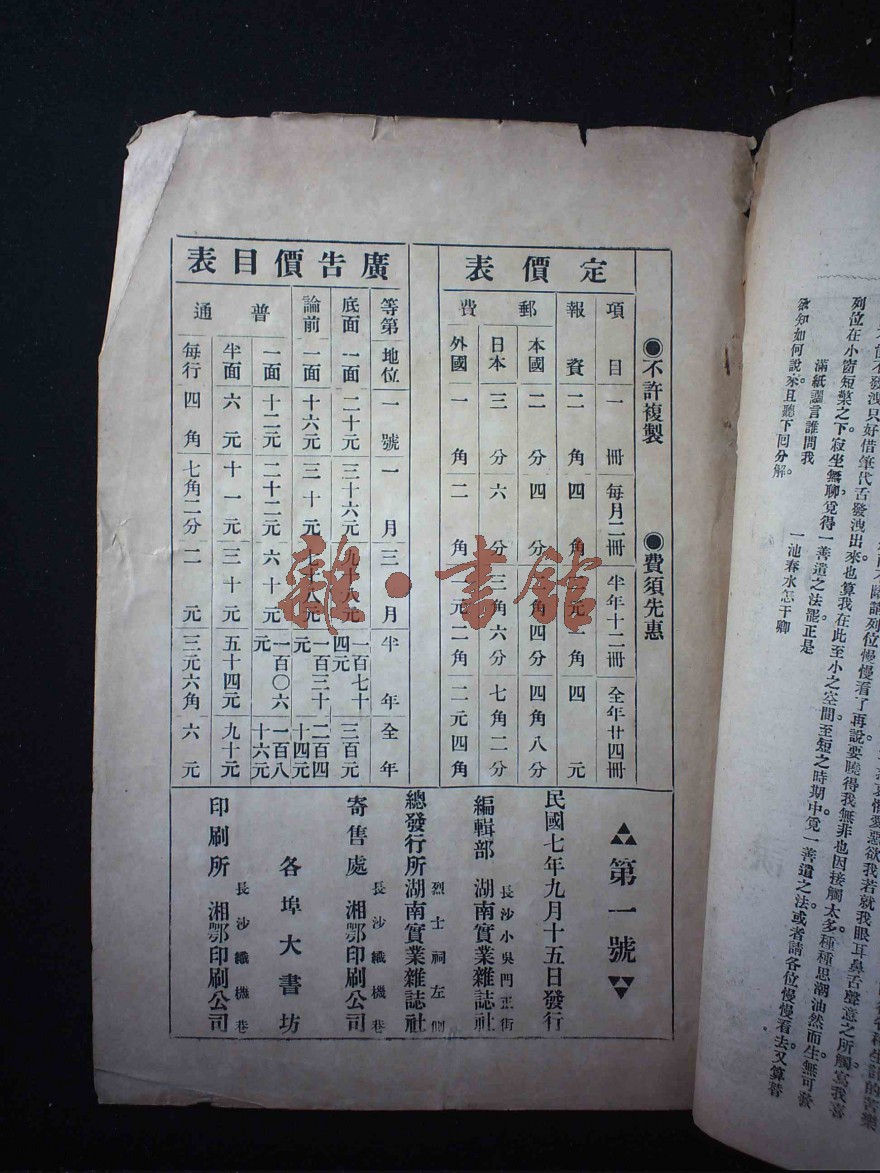 列位在小窗短檠之下。寂坐無聊。覓得一善遣之法。罷正是
滿紙讕言誰問我　一池春水怎干卿
欲知如何說來。且聽下回分解。
●不許複製　●費須先惠
定價表
項目　一冊　每月二冊　半年十二冊　全年廿四冊
報資　二角　四角　元二角　四元
郵費
本國　二分　四分　角四分　四角八分
日本　三分　六分　三角六分　七角二分
外國　一角　二角　元二角　二元四角
廣告價目表
等第　地位　一號　一月　三月　半年　全年
底面　一面　二十元　三十六元　九十八元　一百七十四元　三百元
論前　一面　十六元　三十元　七十八元　一百三十元　二百四十四元
普通
一面　十二元　二十二元　六十元　一百〇六元　一百八十六元
半面　六元　十一元　三十元　五十四元　九十元
每行　四角　七角二分　二元　三元六角　六元
第一號
民國七年九月十五日發行
長沙小吳門正街
編輯部　湖南實業雜誌社
烈士祠左側
總發行所湖南實業雜誌社
長沙織機巷
寄售處　湘鄂印刷公司
各埠大書坊
長沙織機巷
印刷所　湘鄂印刷公司
雜·書館